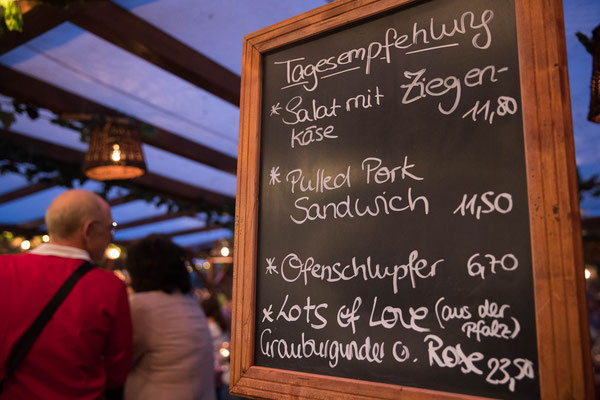 Tagesempfehlung
* Salat mit Ziegen-
käse 11,80
* Pulled Pork
Sandwich 11,50
* Ofenschlupfer 6,70
* Lots of Love (aus der
Pfalz)
Grauburgunder o. Rose 23,50